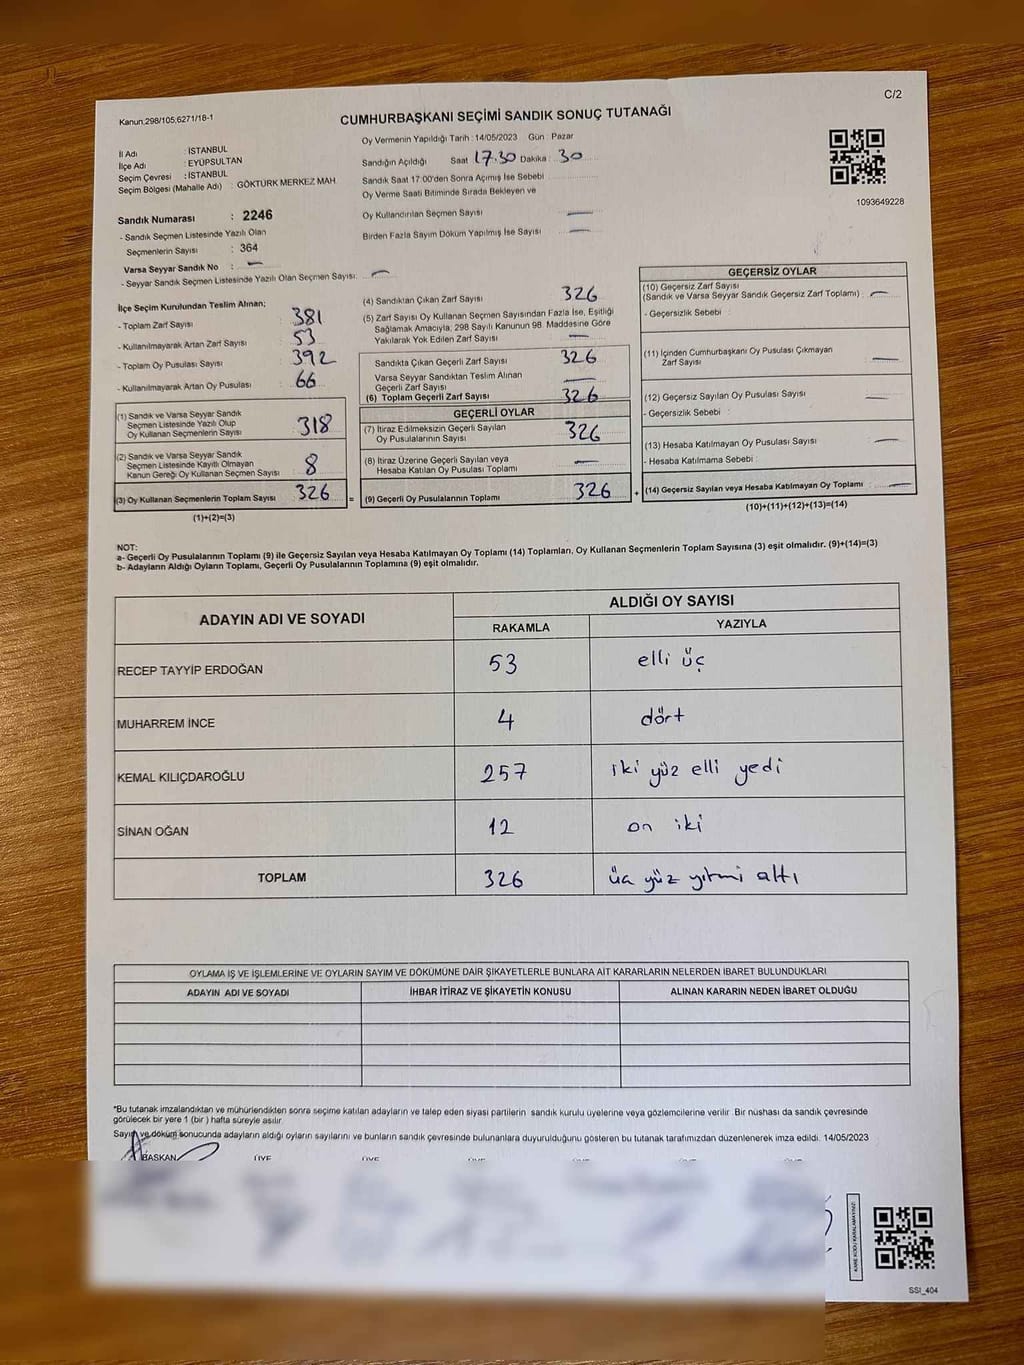 C/2
Kanun.298/105;6271/18-1
CUMHURBAŞKANI SEÇİMİ SANDIK SONUÇ TUTANAĞI
Oy Vermenin Yapıldığı Tarih : 14/05/2023 Gün : Pazar
İl Adı : İSTANBUL
İlçe Adı : EYÜPSULTAN
Seçim Çevresi : İSTANBUL
Seçim Bölgesi (Mahalle Adı) : GÖKTÜRK MERKEZ MAH.
Sandık Numarası : 2246
- Sandık Seçmen Listesinde Yazılı Olan
Seçmenlerin Sayısı : 364
Varsa Seyyar Sandık No : —
- Seyyar Sandık Seçmen Listesinde Yazılı Olan Seçmen Sayısı: —
Sandığın Açıldığı Saat 17.30 Dakika : 30
Sandık Saat 17:00'den Sonra Açımış İse Sebebi
Oy Verme Saati Bitiminde Sırada Bekleyen ve
Oy Kullandırılan Seçmen Sayısı —
Birden Fazla Sayım Döküm Yapılmış İse Sayısı —
1093649228
İlçe Seçim Kurulundan Teslim Alınan;
- Toplam Zarf Sayısı : 381
- Kullanılmayarak Artan Zarf Sayısı : 53
- Toplam Oy Pusulası Sayısı : 392
- Kullanılmayarak Artan Oy Pusulası : 66
(1) Sandık ve Varsa Seyyar Sandık
Seçmen Listesinde Yazılı Olup
Oy Kullanan Seçmenlerin Sayısı 318
(2) Sandık ve Varsa Seyyar Sandık
Seçmen Listesinde Kayıtlı Olmayan
Kanun Gereği Oy Kullanan Seçmen Sayısı 8
(3) Oy Kullanan Seçmenlerin Toplam Sayısı 326 =
(1)+(2)=(3)
(4) Sandıktan Çıkan Zarf Sayısı 326
(5) Zarf Sayısı Oy Kullanan Seçmen Sayısından Fazla İse, Eşitliği
Sağlamak Amacıyla, 298 Sayılı Kanunun 98. Maddesine Göre
Yakılarak Yok Edilen Zarf Sayısı —
Sandıkta Çıkan Geçerli Zarf Sayısı 326
Varsa Seyyar Sandıktan Teslim Alınan
Geçerli Zarf Sayısı —
(6) Toplam Geçerli Zarf Sayısı 326
GEÇERLİ OYLAR
(7) İtiraz Edilmeksizin Geçerli Sayılan
Oy Pusulalarının Sayısı 326
(8) İtiraz Üzerine Geçerli Sayılan veya
Hesaba Katılan Oy Pusulası Toplamı —
(9) Geçerli Oy Pusulalarının Toplamı 326 +
GEÇERSİZ OYLAR
(10) Geçersiz Zarf Sayısı
(Sandık ve Varsa Seyyar Sandık Geçersiz Zarf Toplamı) : —
- Geçersizlik Sebebi :
(11) İçinden Cumhurbaşkanı Oy Pusulası Çıkmayan
Zarf Sayısı —
(12) Geçersiz Sayılan Oy Pusulası Sayısı —
- Geçersizlik Sebebi :
(13) Hesaba Katılmayan Oy Pusulası Sayısı —
- Hesaba Katılmama Sebebi :
(14) Geçersiz Sayılan veya Hesaba Katılmayan Oy Toplamı —
(10)+(11)+(12)+(13)=(14)
NOT:
a- Geçerli Oy Pusulalarının Toplamı (9) ile Geçersiz Sayılan veya Hesaba Katılmayan Oy Toplamı (14) Toplamları, Oy Kullanan Seçmenlerin Toplam Sayısına (3) eşit olmalıdır. (9)+(14)=(3)
b- Adayların Aldığı Oyların Toplamı, Geçerli Oy Pusulalarının Toplamına (9) eşit olmalıdır.
ADAYIN ADI VE SOYADI
ALDIĞI OY SAYISI
RAKAMLA YAZIYLA
RECEP TAYYİP ERDOĞAN 53 elli üç
MUHARREM İNCE 4 dört
KEMAL KILIÇDAROĞLU 257 iki yüz elli yedi
SİNAN OĞAN 12 on iki
TOPLAM 326 üç yüz yirmi altı
OYLAMA İŞ VE İŞLEMLERİNE VE OYLARIN SAYIM VE DÖKÜMÜNE DAİR ŞİKAYETLERLE BUNLARA AİT KARARLARIN NELERDEN İBARET BULUNDUKLARI
ADAYIN ADI VE SOYADI İHBAR İTİRAZ VE ŞİKAYETİN KONUSU ALINAN KARARIN NEDEN İBARET OLDUĞU
*Bu tutanak imzalandıktan ve mühürlendikten sonra seçime katılan adayların ve talep eden siyasi partilerin sandık kurulu üyelerine veya gözlemcilerine verilir. Bir nüshası da sandık çevresinde
görülecek bir yere 1 (bir) hafta süreyle asılır.
Sayım ve döküm sonucunda adayların aldığı oyların sayılarını ve bunların sandık çevresinde bulunanlara duyurulduğunu gösteren bu tutanak tarafımızdan düzenlenerek imza edildi. 14/05/2023
BAŞKAN ÜYE ÜYE
SSİ_404